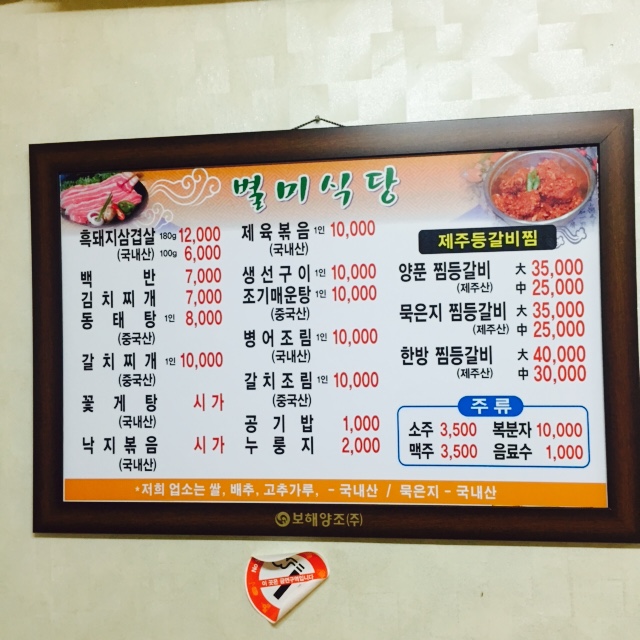 별미식당
흑돼지삼겹살 180g 12,000
(국내산) 100g 6,000
백 반 7,000
김치찌개 7,000
동태탕 1인 8,000
(중국산)
갈치찌개 1인 10,000
(중국산)
꽃게탕 시가
(국내산)
낙지볶음 시가
(국내산)
제육볶음 1인 10,000
(국내산)
생선구이 1인 10,000
조기매운탕 1인 10,000
(중국산)
병어조림 1인 10,000
(국내산)
갈치조림 1인 10,000
(중국산)
공기밥 1,000
누룽지 2,000
제주등갈비찜
양푼 찜등갈비 大 35,000
(제주산) 中 25,000
묵은지 찜등갈비 大 35,000
(제주산) 中 25,000
한방 찜등갈비 大 40,000
(제주산) 中 30,000
주류
소주 3,500 복분자 10,000
맥주 3,500 음료수 1,000
•저희 업소는 쌀, 배추, 고추가루, - 국내산 / 묵은지 - 국내산
보해양조(주)
NO
이 곳은 금연구역입니다